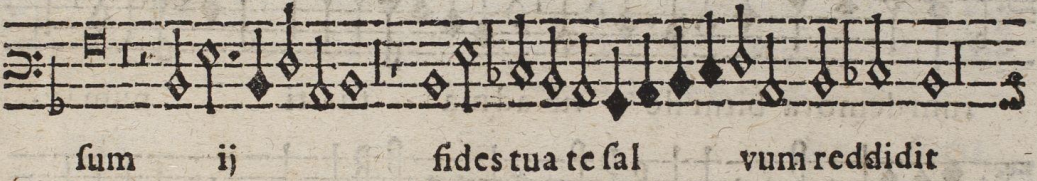 ſum ij fides tua te ſal vum reddidit